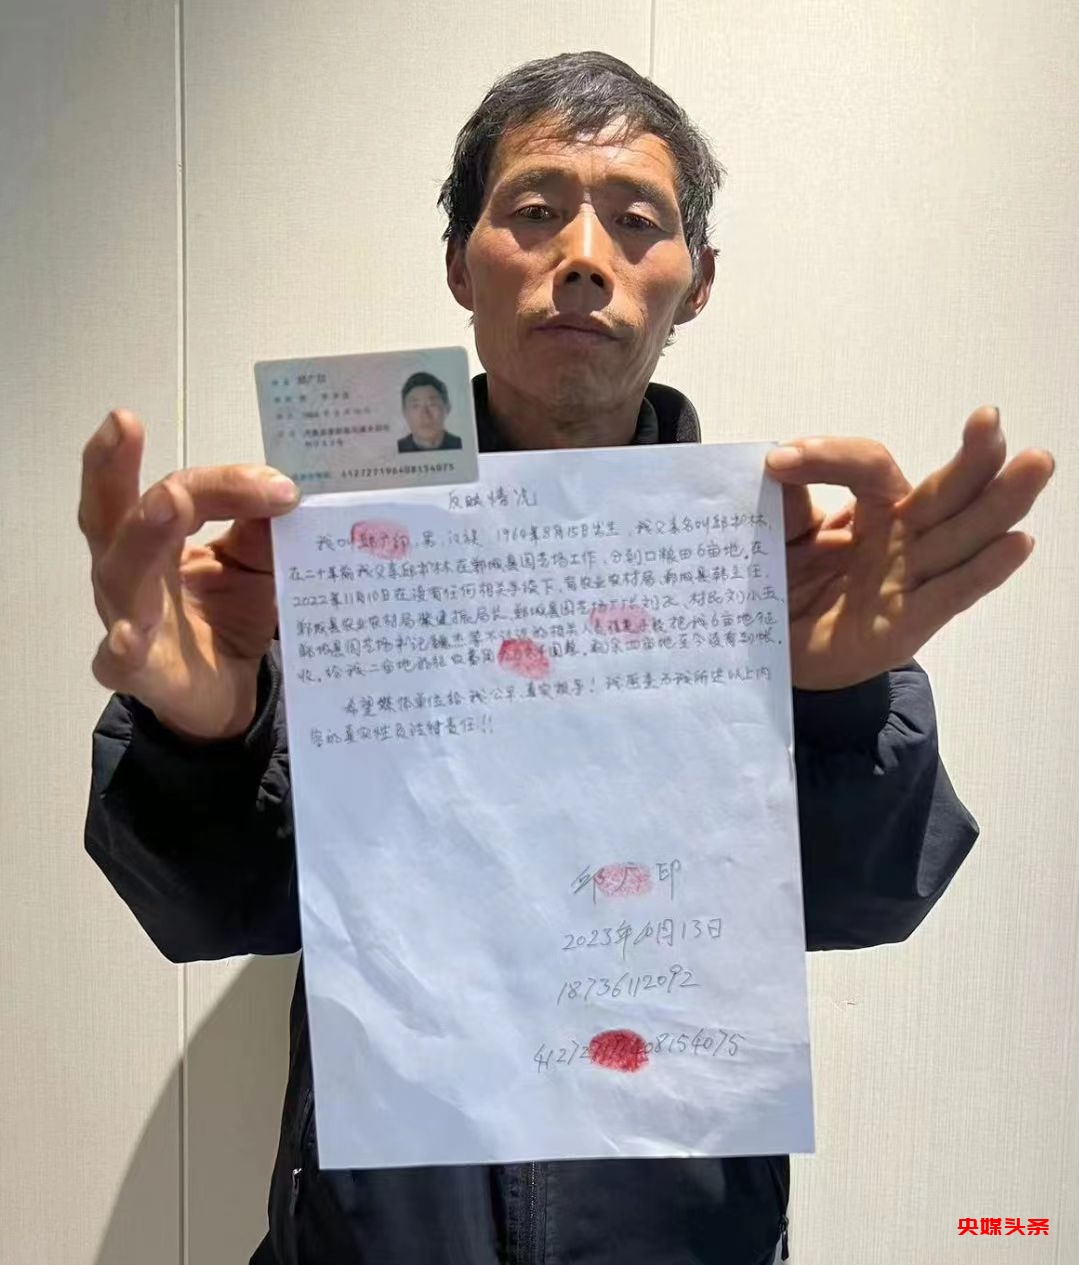 姓名 邱广印
412727196408154075
反映情况
我叫邱广印,男,汉族 1964年8月15日出生,我父亲名叫邱书林,
在二十年前我父亲邱书林在郸城县园艺场工作,分到口粮田6亩地。在
2022年11月10日在没有任何相关手续下,有农业农村局,郸城县韩主任,
郸城县农业农村局 建振局长,郸城县园艺场厂长刘 ,村民刘小五,
郸城县园艺场书记魏杰等 的相关人员 手段把我6亩地征
收。给我二亩地的征收费用 ,剩余四亩地至今没有到帐
希望媒体单位给我公平,真实报导!我愿意为我所述以上内
容的真实性负法律责任!!
邱广印
2023年10月13日
18736112092
412727196408154075
央媒头条